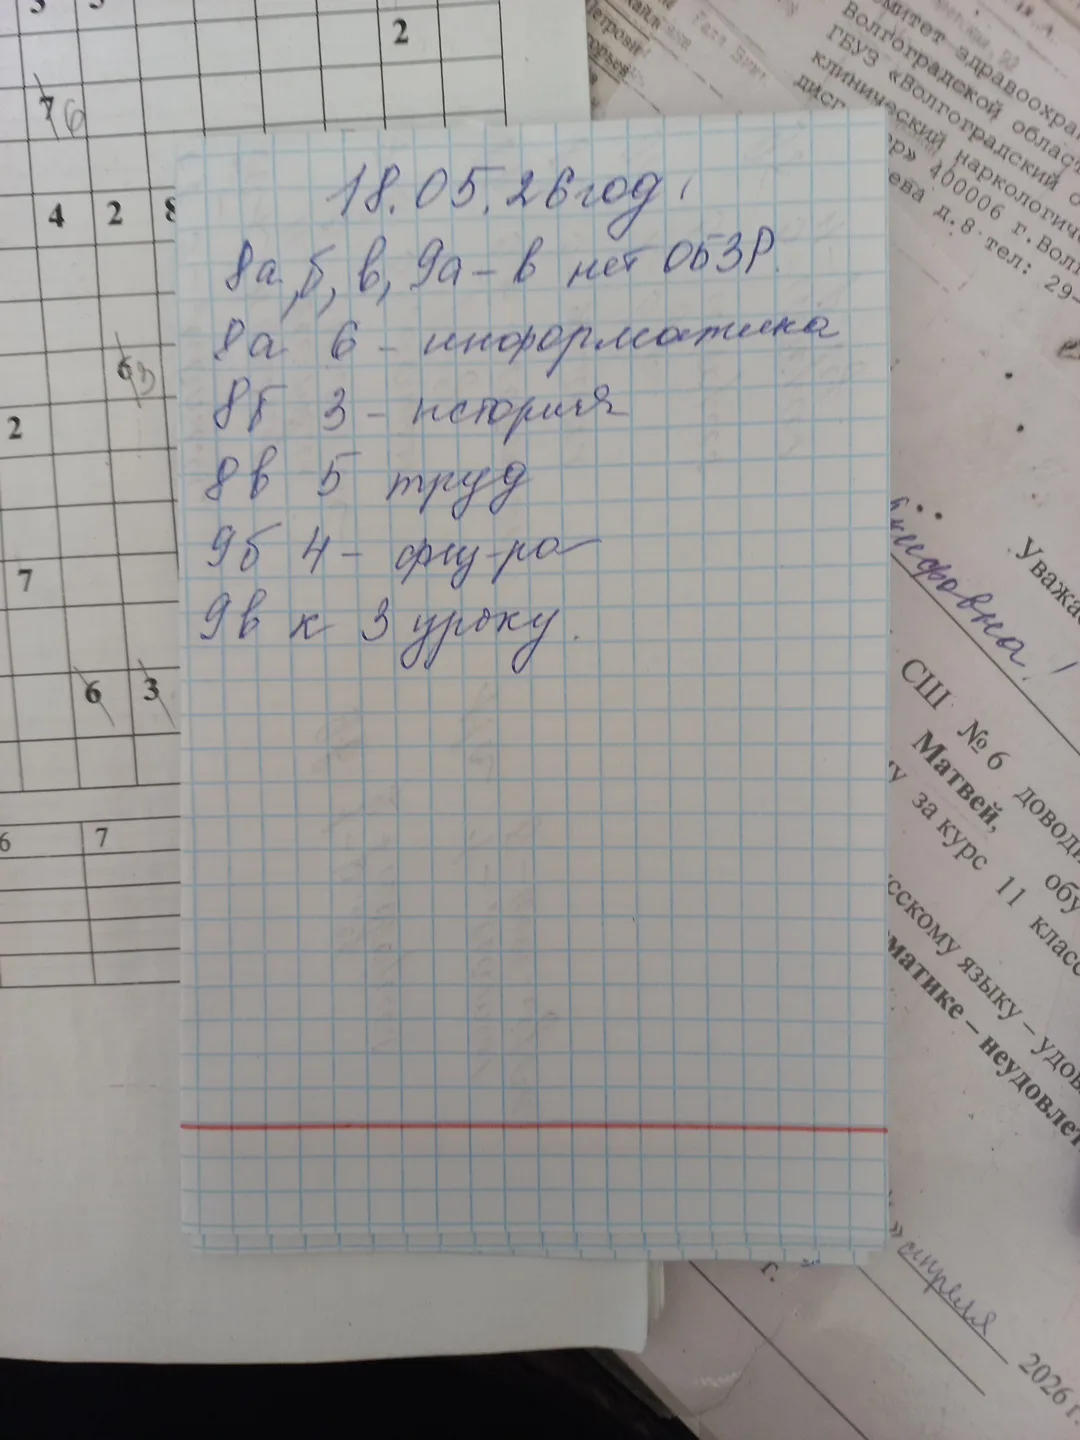 3 3
2
7 6
4 2 8
6 3
2
7
6 3
6 7
18.05.26год.
8а, б, в, 9а – в нет ОБЗР.
8а 6 – информатика
8б 3 – история
8в 5 труд
9б 4 – физ-ра
9в к 3 уроку.
комитет здравоохран
Волгоградской област
ГБУЗ «Волгоградский о
клинический наркологиче
дисп ер» 400006 г.Волг
ева д.8 тел: 29-
Уважа
СШ № 6 доводи
Матвей, обу
за курс 11 класс
усскому языку – удов
матике – неудовлет
» апреля 2026 г.
г.